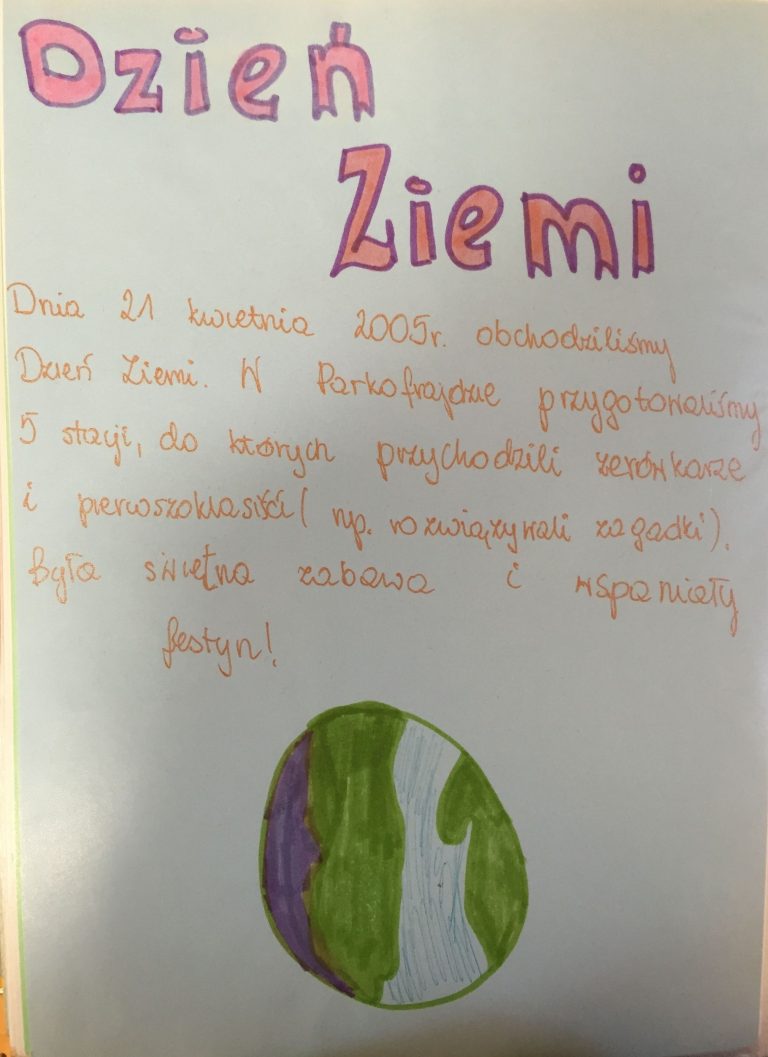 Dzień
Ziemi
Dnia 21 kwietnia 2005r. obchodziliśmy
Dzień Ziemi. W Parkofrajdzie przygotowaliśmy
5 stacji, do których przychodzili zerówkarze
i pierwszoklasiści (np. rozwiązywali zagadki).
Była świetna zabawa i wspaniały
festyn!